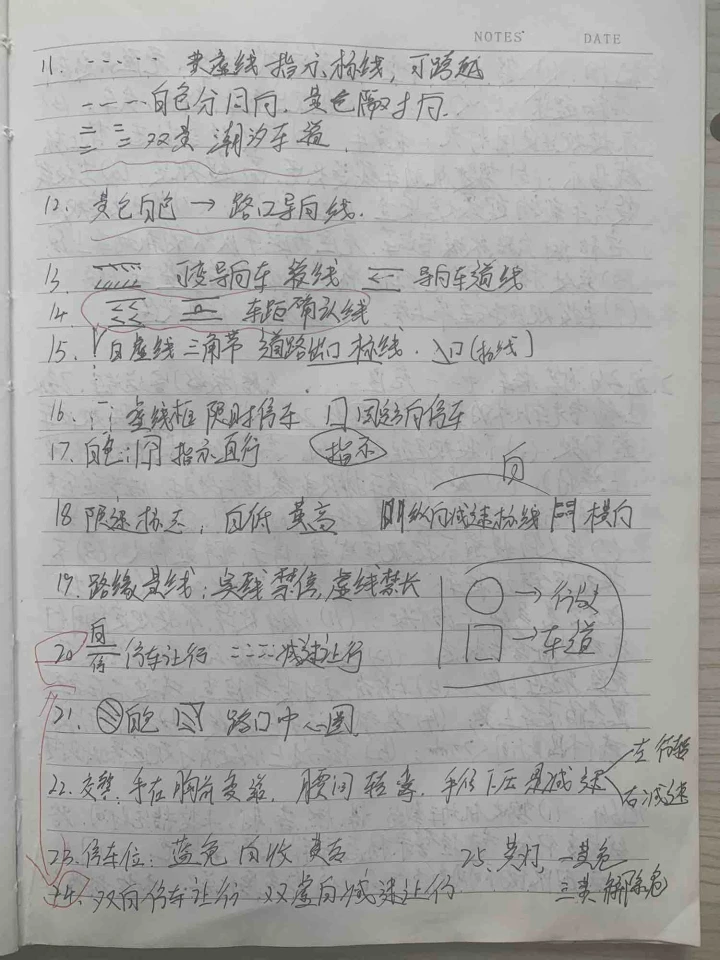 NOTES DATE
11. 黄虚线 指示标线, 可跨越
白色分同向. 黄色隔对向.
双黄 潮汐车道.
12. 黄色白色 → 路口导向线.
13 可变导向车道线 导向车道线
14. 车距确认线
15. 白虚线 三角带 道路出口标线. 入口(标线)
16. 虚线框 限时停车 固定方向停车
17. 白色: 指示直行 指示
白
18 限速标志, 白低 黄高 纵向减速标线 横向
19. 路缘黄线: 实线禁停, 虚线禁长
→ 行驶
→ 车道
20 白 停 停车让行 减速让行
21. 白色 路口中心圈
22. 交警. 手在胸前变道. 腰间转弯. 手心下压是减速
左 行驶
右 减速
23. 停车位: 蓝免 白收 黄
25. 黄灯, 一黄危
三黄解除危
24. 双向停车让行 双虚向减速让行